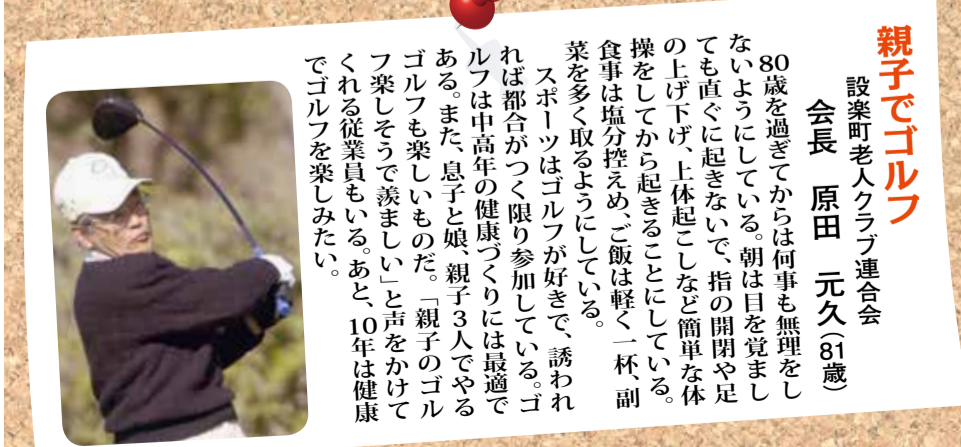 親子でゴルフ
設楽町老人クラブ連合会
会長　原田　元久（81歳）
80歳を過ぎてからは何事も無理をし
ないようにしている。朝は目を覚まし
ても直ぐに起きないで、指の開閉や足
の上げ下げ、上体起こしなど簡単な体
操をしてから起きることにしている。
食事は塩分控えめ、ご飯は軽く一杯、副
菜を多く取るようにしている。
スポーツはゴルフが好きで、誘われ
れば都合がつく限り参加している。ゴ
ルフは中高年の健康づくりには最適で
ある。また、息子と娘、親子3人でやる
ゴルフも楽しいものだ。「親子のゴル
フ楽しそうで羨ましい」と声をかけて
くれる従業員もいる。あと、10年は健康
でゴルフを楽しみたい。